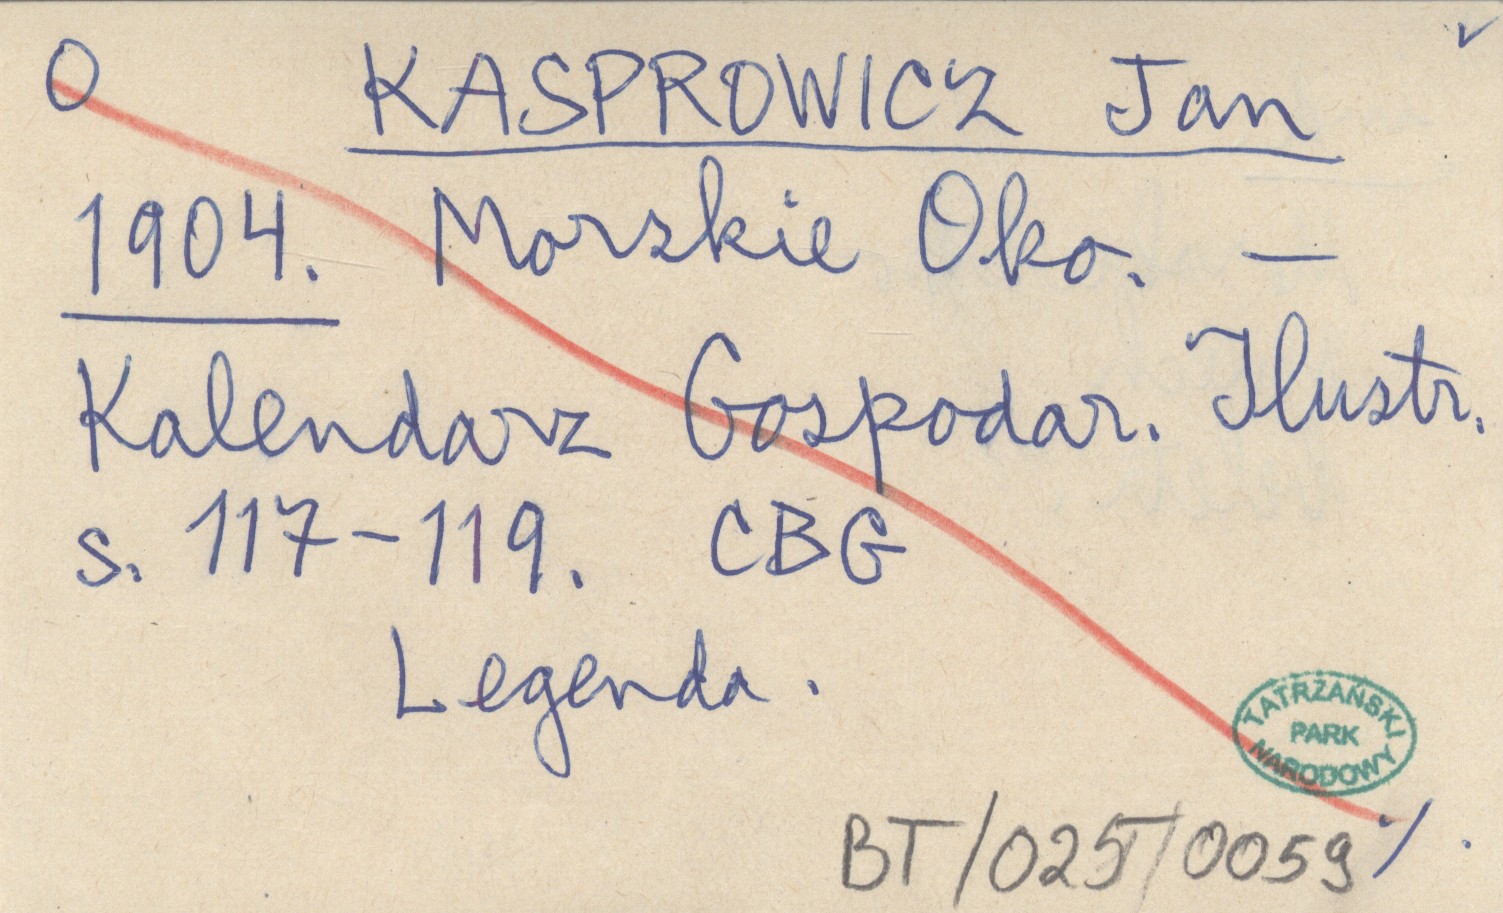 O KASPROWICZ Jan
1904. Morskie Oko. —
Kalendarz Gospodar. Ilustr.
s. 117-119. CBG
Legenda.
TATRZAŃSKI
PARK
NARODOWY
BT/025/0059